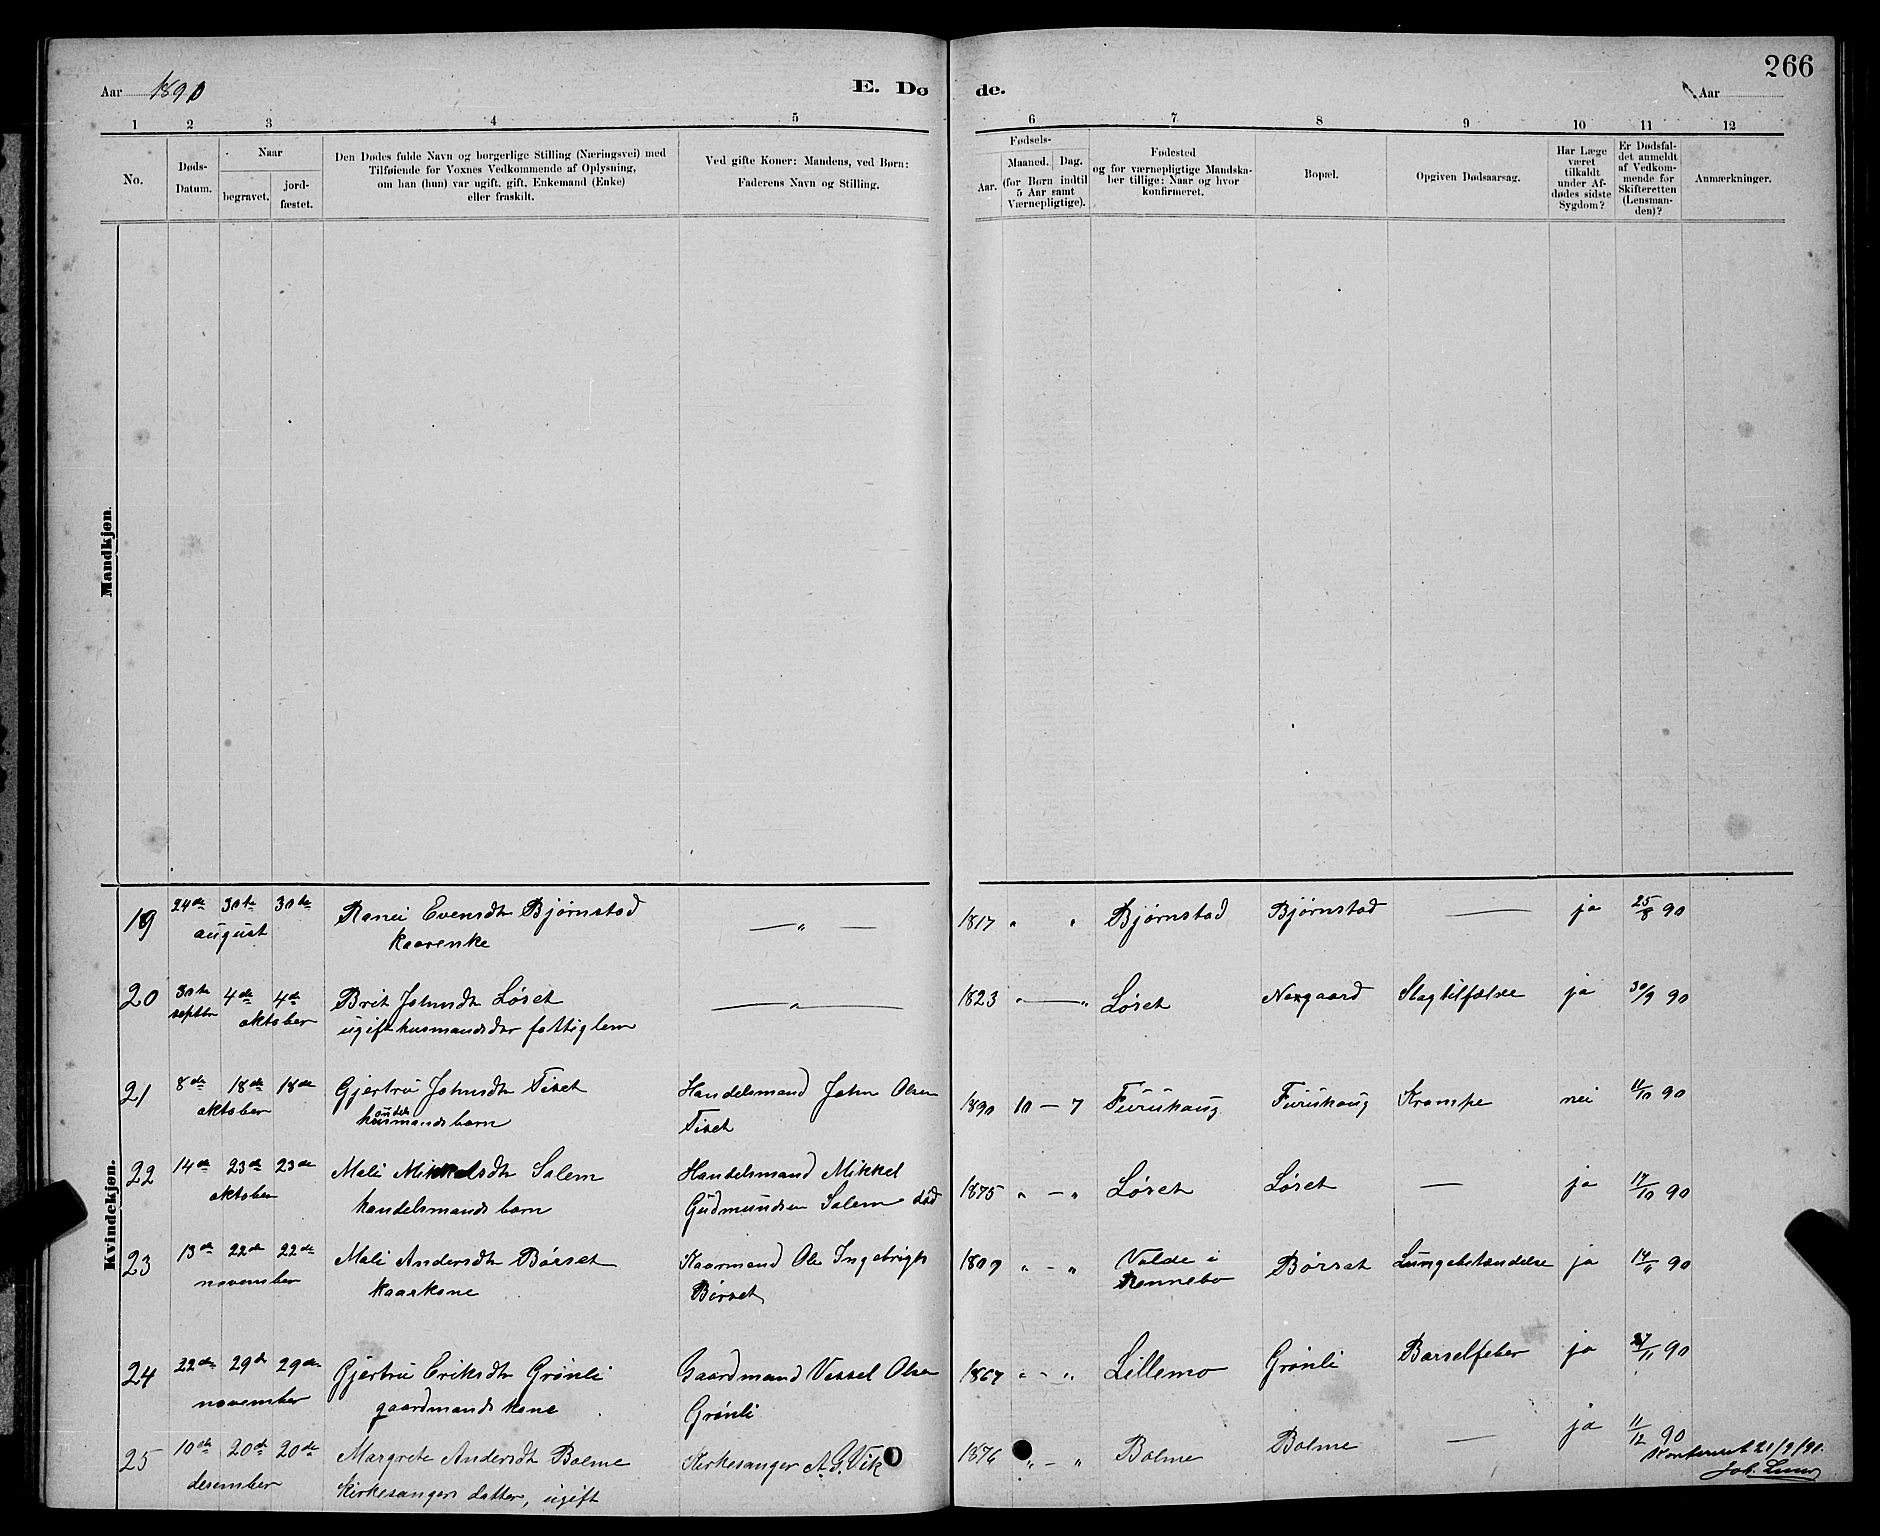 266
Aar 1890 E. Dø de. Aar
1 2 3 4 5 6 7 8 9 10 11 12
No.
Døds-
Datum.
Naar
begravet.
jord-
fæstet.
Den Dødes fulde Navn og borgerlige Stilling (Næringsvei) med
Tilføiende for Voxnes Vedkommende af Oplysning,
om han (hun) var ugift, gift, Enkemand (Enke)
eller fraskilt.
Ved gifte Koner: Mandens, ved Børn:
Faderens Navn og Stilling.
Fødsels-
Aar.
Maaned. Dag.
(for Børn indtil
5 Aar samt
Værnepligtige).
Fødested
og for værnepligtige Mandska-
ber tillige: Naar og hvor
konfirmeret.
Bopæl.
Opgiven Dødsaarsag.
Har Læge
været
tilkaldt
under Af-
dødes sidste
Sygdom?
Er Dødsfal-
det anmeldt
af Vedkom-
mende for
Skifteretten
(Lensman-
den)?
Anmærkninger.
Mandkjøn.
Kvindekjøn.
19 24de 30te 30te Ranei Evensdtr Bjørnstad — „ — 1817 „ „ Bjørnstad Bjørnstad — ja 25/8 90
august kaarenke
20 30te 4de 4de Brit Johnsdtr Løset — „ — 1823 „ — „ Løset Nergaard Slagtilfælde ja 30/9 90
septbr oktober ugift husmandsdtr fattiglem
21 8de 18de 18de Gjertru Johnsdtr Tiset Handelsmand John Olsen 1890 10 — 7 Furuhaug Furuhaug Krampe nei 11/10 90
oktober handelsmandsbarn Tiset
22 14de 23de 23de Mali Mikkelsdtr Salem Handelsmand Mikkel 1875 „ — „ Løset Løset — ja 17/10 90
oktober handelsmands barn Gudmundsen Salem død
23 13de 22de 22de Mali Andersdtr Børset Kaarmand Ole Ingebrigts 1809 „ — „ Volde i Børset Lungebetændelse ja 14/11 90
november kaarkone Børset Rennebo
24 22de 29de 29de Gjertru Eriksdtr Grønli Gaardmand Vessel Olsen 1867 „ — „ Lillemo Grønli Barselfeber ja 27/11 90
november gaardmands kone Grønli
25 10de 20de 20de Margrete Andersdtr Bolme Kirkesanger A. G. Vik 1876 „ — „ Bolme Bolme — ja 11/12 90
desember kirkesangers datter, ugift
Konferert 21/9/91.
Joh. Lund